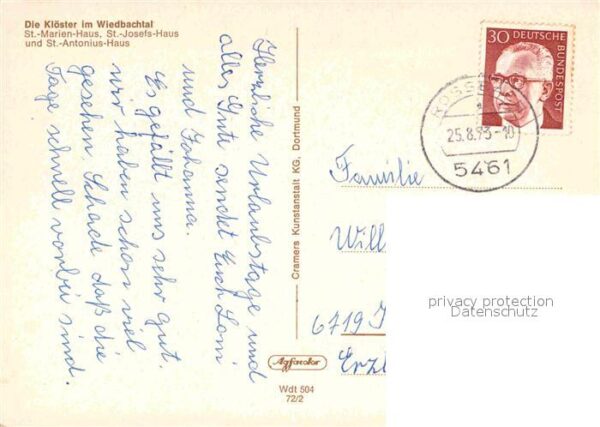 Die Klöster im Wiedbachtal
St.-Marien-Haus, St.-Josefs-Haus
und St.-Antonius-Haus
Herzliche Urlaubstage und
alles Gute sendet Euch Loni
und Johanna.
Es gefällt uns sehr gut.
wir haben schon viel
gesehen. Schade daß die
Tage schnell vorbei sind.
Cramers Kunstanstalt KG, Dortmund
Agfacolor
Wdt 504
72/2
30 DEUTSCHE
BUNDESPOST
25.8.73-10
5461
Familie
Will
6719
Erz
privacy protection
Datenschutz